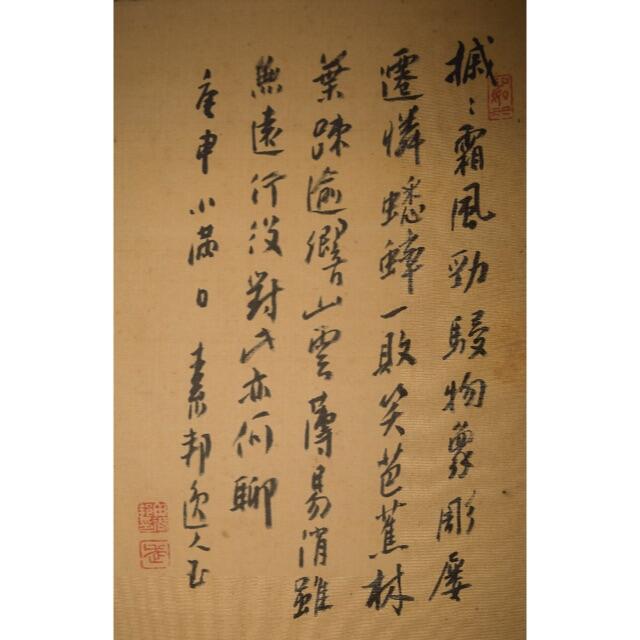 摵〻霜風勁駸物象彫屢
遷憐蟋蟀一敗笑芭蕉林
葉疎逾響山雲薄易消雖
無遠行役對此亦何聊
庚申小滿日 素邦逸人